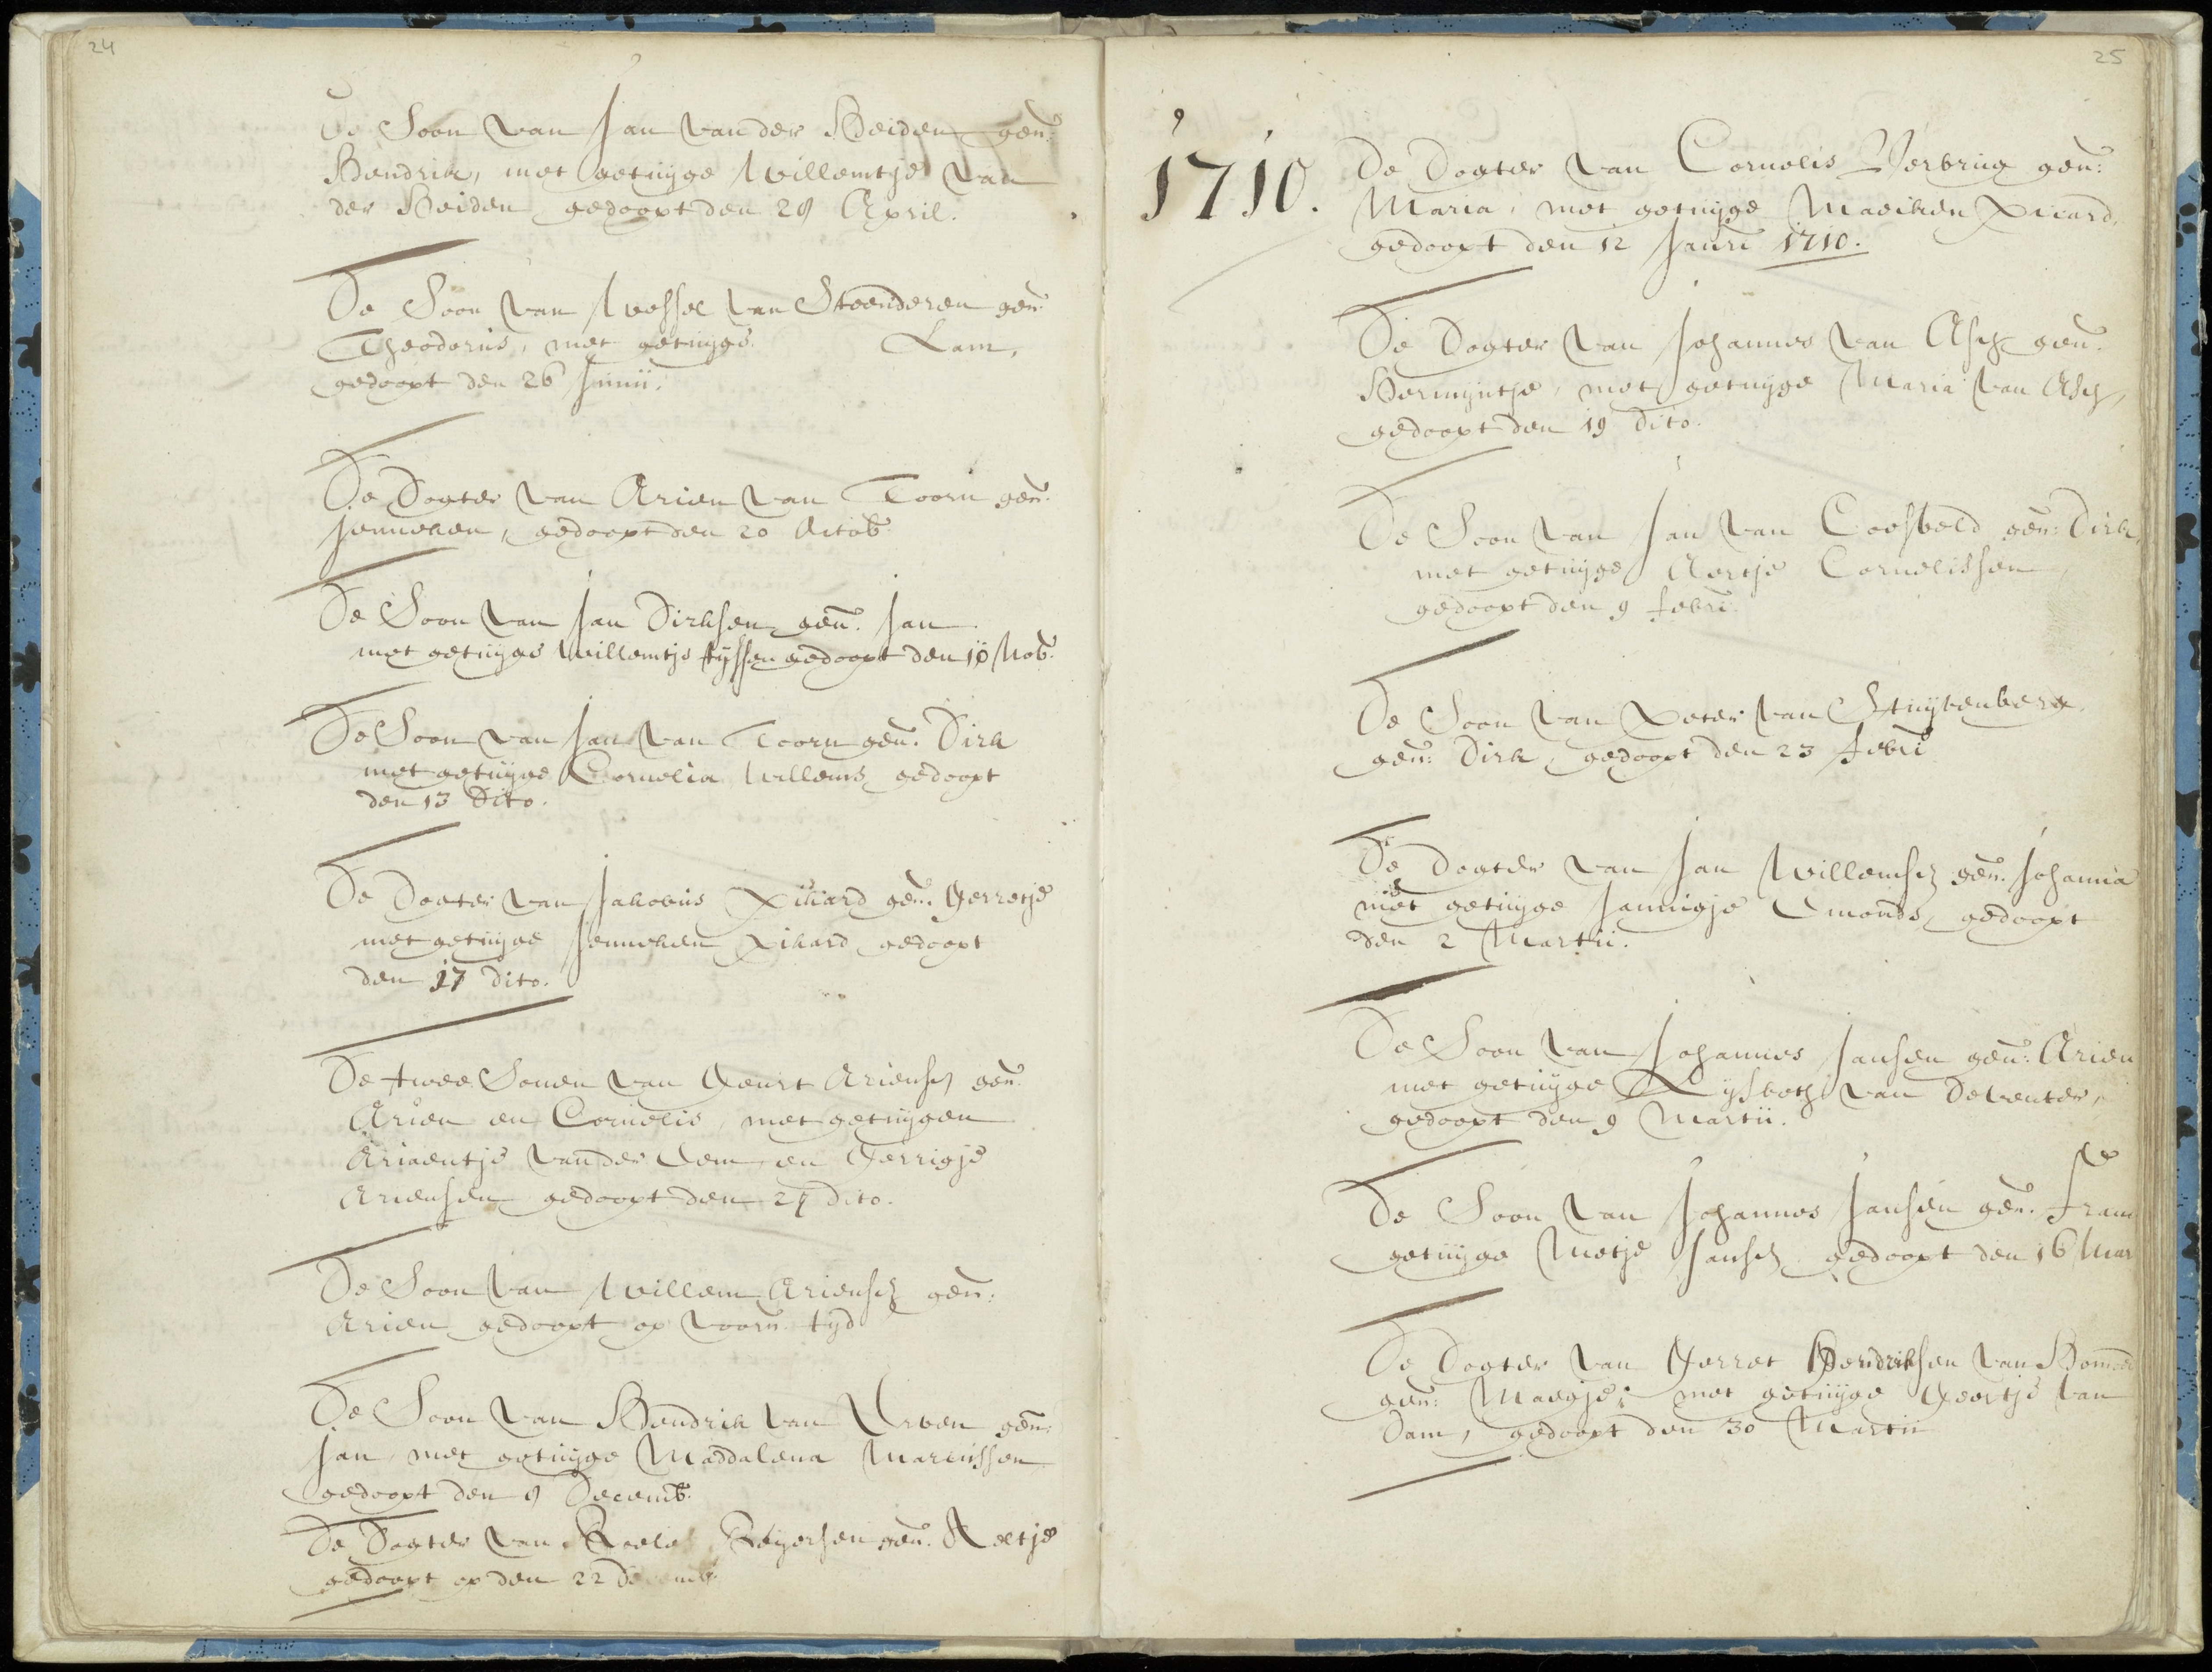 24
De Soon van Jan van der Heiden gen:
Hendrik, met getuyge Willemtje van
der Heiden gedoopt den 28 April.
De Soon van Wessel van Steenderen gen:
Theodorus, met getuyge Lam,
gedoopt den 26 Junii.
De Dogter van Arien van Toorn gen:
Jenneken, gedoopt den 20 Octob:
De Soon van Jan Dirksen gen: Jan
met getuyge Willemtje tyssen gedoopt den 10 Nob:
De Soon van Jan van Toorn gen: Dirk
met getuyge Cornelia Willems gedoopt
den 13 Dito.
De Dogter van Jakobus Pikard gen: Gerretje
met getuyge Jenneken Pikard gedoopt
den 17 dito.
De twee Sonen van Geurt Ariensz gen:
Arien en Cornelis, met getuygen
Ariaentje van der Eem, en Gerrigje
Ariensen gedoopt den 24 dito.
De Soon van Willem Ariensz gen:
Arien gedoopt op voorn. tyd
De Soon van Hendrik van Erven gen:
Jan, met getuyge Maddalena Marcussen
gedoopt den 9 Decemb:
De Dogter van Roelof Reyersen gen: Aeltje
gedoopt op den 22 Decemb:
25
1710. De Dogter van Cornelis Verbrug gen:
Maria, met getuyge Maeiken Picard,
gedoopt den 12 Januri 1710.
De Dogter van Johannes van Asch gen:
Hermyntje, met getuyge Maria van Asch,
gedoopt den 19 Dito.
De Soon van Jan van Coesveld gen: Dirk,
met getuyge Aertje Cornelissen
gedoopt den 9 febri.
De Soon van Peter van Stuyvenberg
gen: Dirk, gedoopt den 23 febri
De Dogter van Jan Willemsz gen: Johanna
met getuyge Jannigje Emonds, gedoopt
den 2 Martii.
De Soon van Johannes Jansen gen: Arien
met getuyge Lysbeth van Deventer,
gedoopt den 9 Martii.
De Soon van Johannes Jansen gen: Frans
getuyge Metje Jansz gedoopt den 16 Mar
De Dogter van Gerret Hendriksen van Bommel
gen: Maegje; met getuyge Geertje van
Dam, gedoopt den 30 Martii